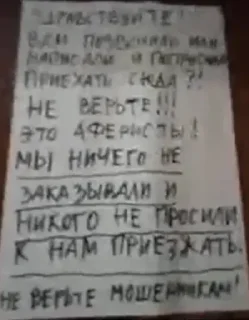 ЗДРАВСТВУЙТЕ!
ВАМ ПОЗВОНИЛИ ИЛИ
НАПИСАЛИ И ПОПРОСИЛИ
ПРИЕХАТЬ СЮДА?!
НЕ ВЕРЬТЕ!!!
ЭТО АФЕРИСТЫ!
МЫ НИЧЕГО НЕ
ЗАКАЗЫВАЛИ И
НИКОГО НЕ ПРОСИЛИ
К НАМ ПРИЕЗЖАТЬ.
НЕ ВЕРЬТЕ МОШЕННИКАМ!